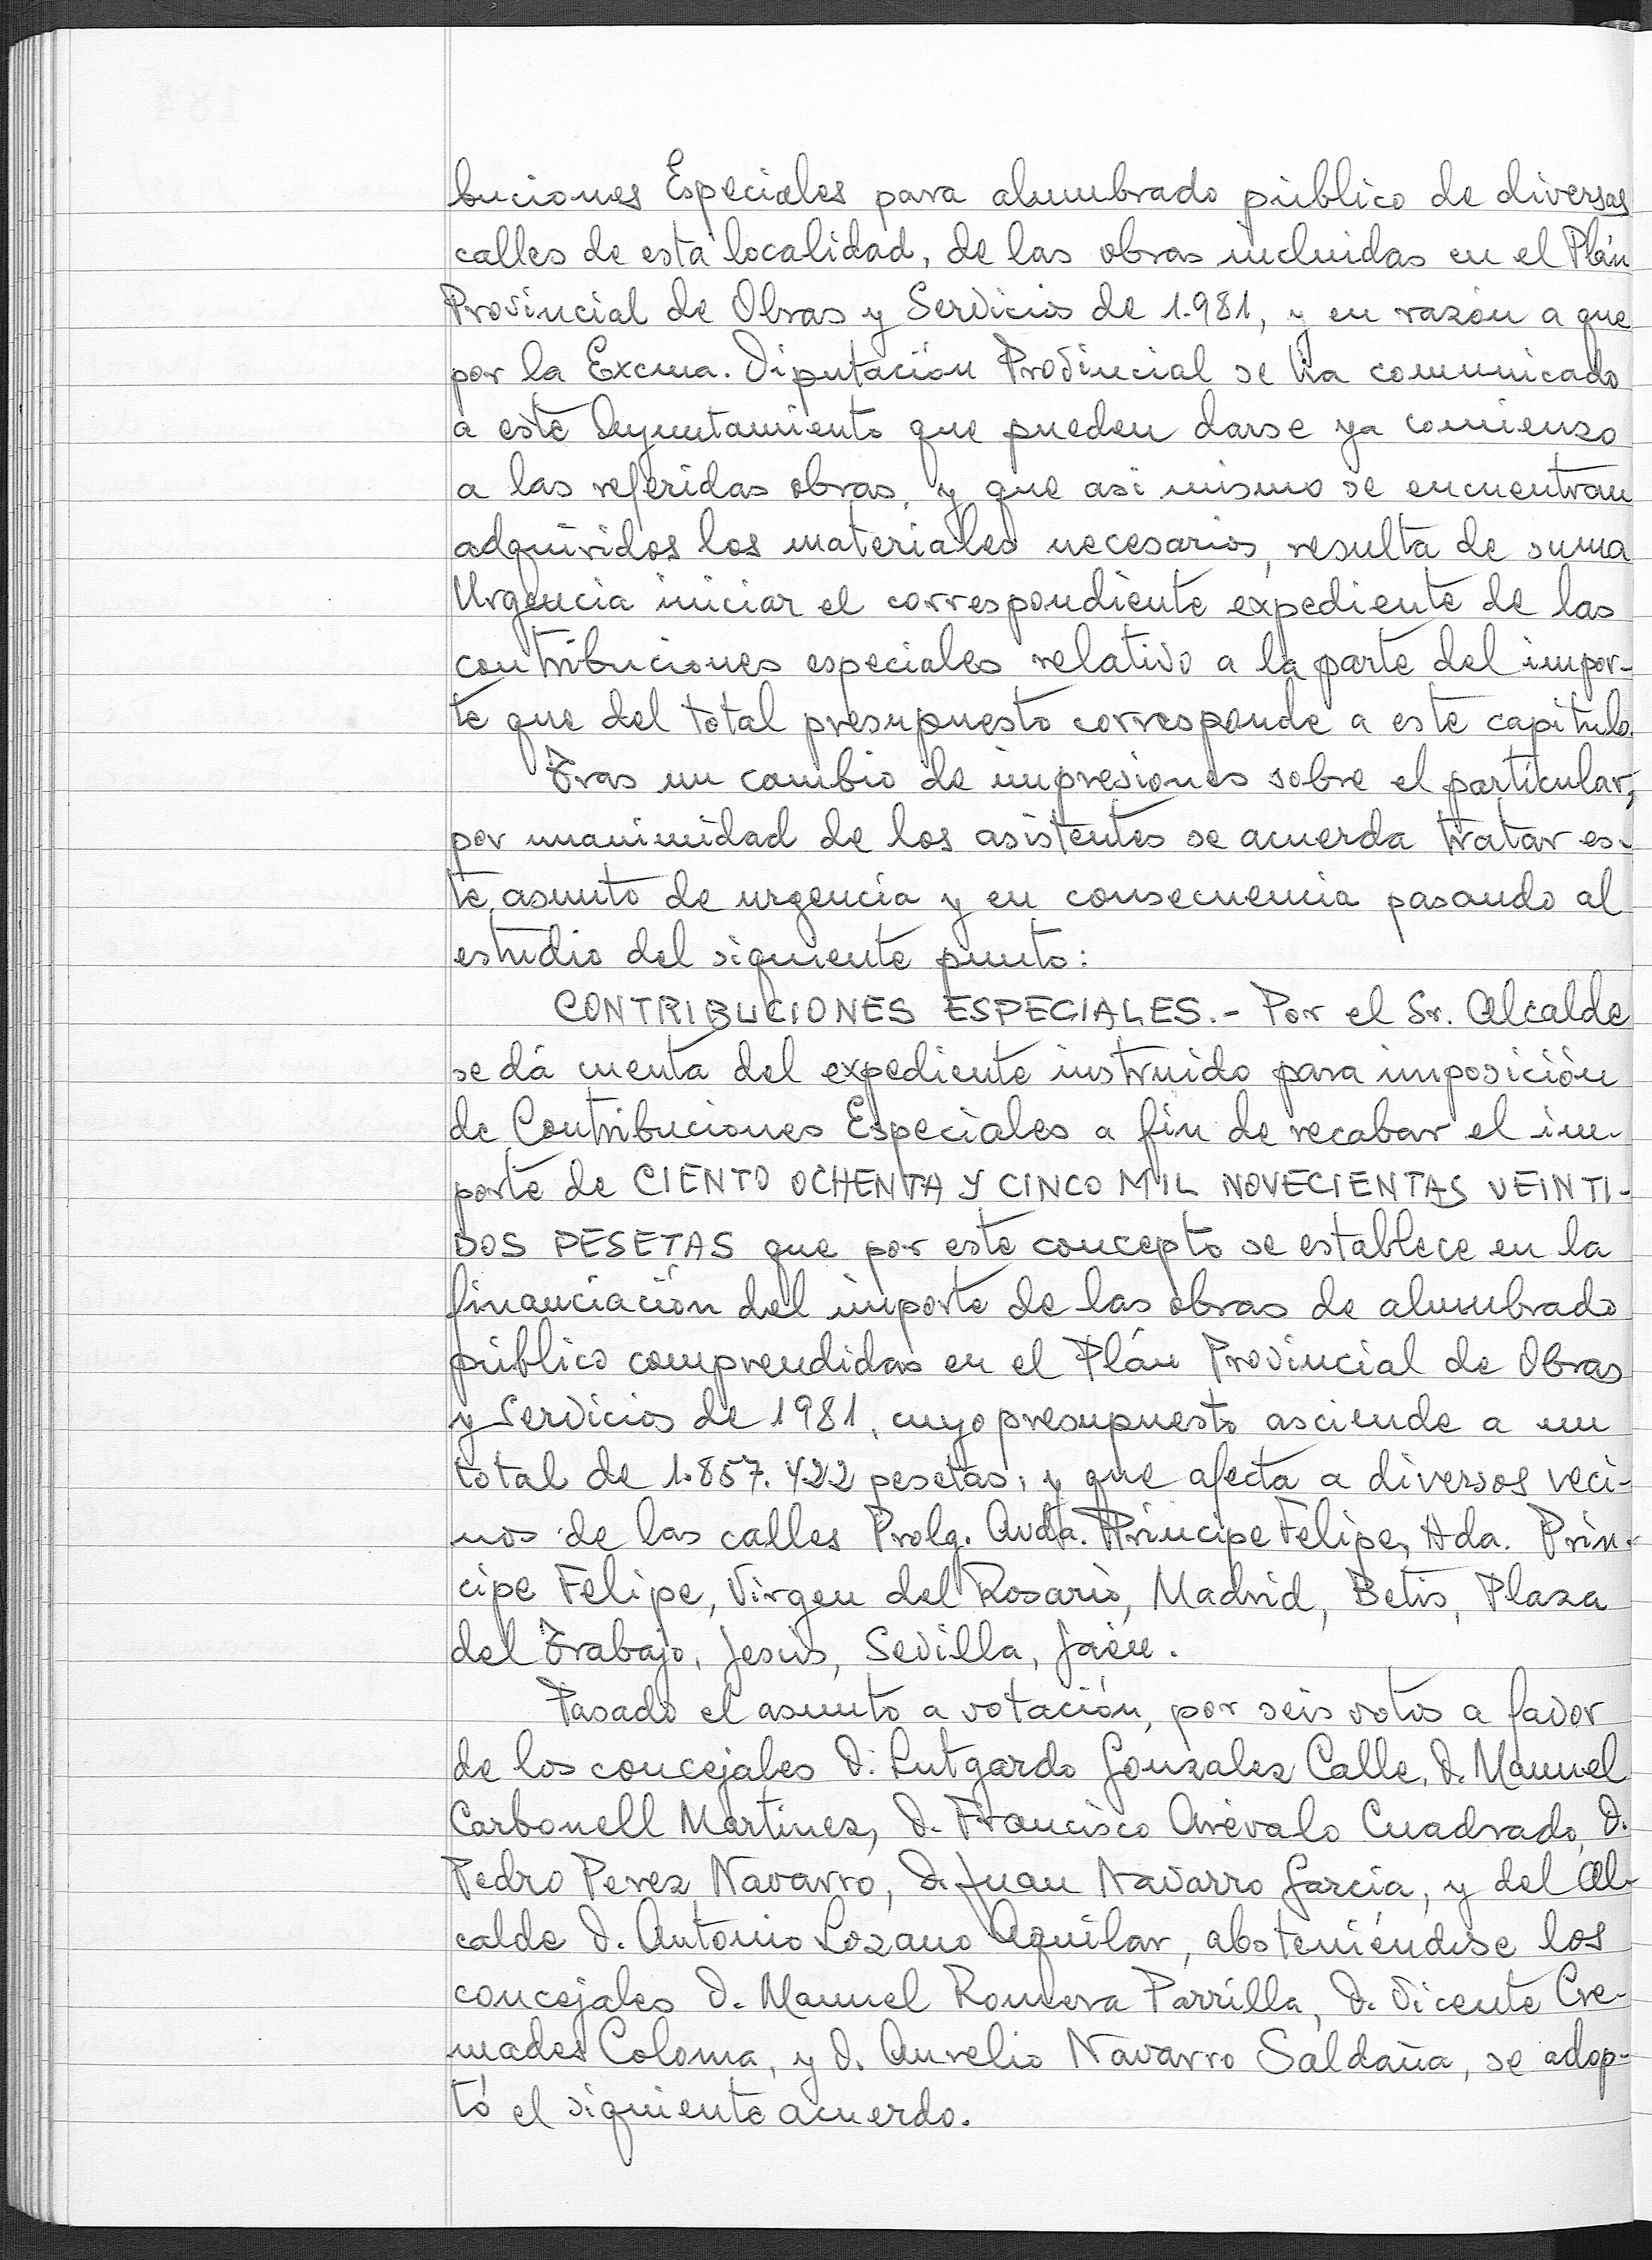 buciones Especiales para alumbrado público de diversas
calles de esta localidad, de las obras incluidas en el Plán
Provincial de Obras y Servicios de 1.981, y en razón a que
por la Excma. Diputación Provincial se ha comunicado
a este Ayuntamiento que pueden darse ya comienzo
a las referidas obras, y que asi mismo se encuentran
adquiridos los materiales necesarios, resulta de suma
Urgencia iniciar el correspondiente expediente de las
contribuciones especiales relativo a la parte del impor-
te que del total presupuesto corresponde a este capitulo.
Tras un cambio de impresiones sobre el particular,
por unanimidad de los asistentes se acuerda tratar es-
te asunto de urgencia y en consecuencia pasando al
estudio del siguiente punto:
CONTRIBUCIONES ESPECIALES.- Por el Sr. Alcalde
se dá cuenta del expediente instruido para imposición
de Contribuciones Especiales a fin de recabar el im-
porte de CIENTO OCHENTA Y CINCO MIL NOVECIENTAS VEINTI-
DOS PESETAS que por este concepto se establece en la
financiación del importe de las obras de alumbrado
público comprendidas en el Plán Provincial de Obras
y Servicios de 1981, cuyo presupuesto asciende a un
total de 1.857.422 pesetas, y que afecta a diversos veci-
nos de las calles Prolg. Avda. Principe Felipe, Ada. Prin-
cipe Felipe, Virgen del Rosario, Madrid, Betis, Plaza
del Trabajo, Jesús, Sevilla, Jaén.
Pasado el asunto a votación, por seis votos a favor
de los concejales D. Lutgardo Gonzalez Calle, D. Manuel
Carbonell Martinez, D. Francisco Arévalo Cuadrado, D.
Pedro Perez Navarro, D. Juan Navarro García, y del Al-
calde D. Antonio Lozano Aguilar, absteniéndose los
concejales D. Manuel Romera Parrilla, D. Vicente Cre-
mades Coloma, y D. Aurelio Navarro Saldaña, se adop-
tó el siguiente acuerdo.